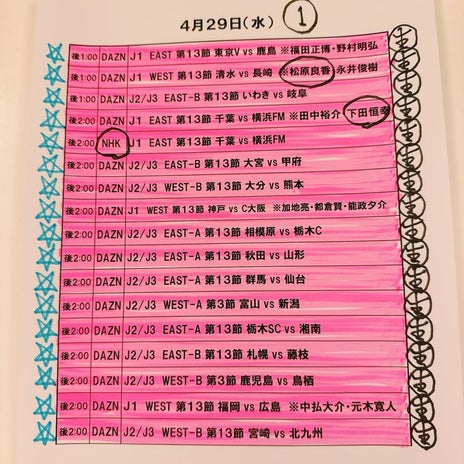 4月29日(水) ①
後1:00 DAZN J1 EAST 第13節 東京V vs 鹿島 ※福田正博・野村明弘 生
後1:00 DAZN J1 WEST 第13節 清水 vs 長崎 ※松原良香・永井俊樹 生
後1:00 DAZN J2/J3 EAST-B 第13節 いわき vs 岐阜 生
後2:00 DAZN J1 EAST 第13節 千葉 vs 横浜FM ※田中裕介・下田恒幸 生
後2:00 NHK J1 EAST 第13節 千葉 vs 横浜FM 生
後2:00 DAZN J2/J3 EAST-B 第13節 大宮 vs 甲府 生
後2:00 DAZN J2/J3 WEST-B 第13節 大分 vs 熊本 生
後2:00 DAZN J1 WEST 第13節 神戸 vs C大阪 ※加地亮・都倉賢・能政夕介 生
後2:00 DAZN J2/J3 EAST-A 第13節 相模原 vs 栃木C 生
後2:00 DAZN J2/J3 EAST-A 第13節 秋田 vs 山形 生
後2:00 DAZN J2/J3 EAST-A 第13節 群馬 vs 仙台 生
後2:00 DAZN J2/J3 WEST-A 第3節 富山 vs 新潟 生
後2:00 DAZN J2/J3 EAST-A 第13節 栃木SC vs 湘南 生
後2:00 DAZN J2/J3 EAST-B 第13節 札幌 vs 藤枝 生
後2:00 DAZN J2/J3 WEST-B 第3節 鹿児島 vs 鳥栖 生
後2:00 DAZN J1 WEST 第13節 福岡 vs 広島 ※中払大介・元木寛人 生
後2:00 DAZN J2/J3 WEST-B 第13節 宮崎 vs 北九州 生